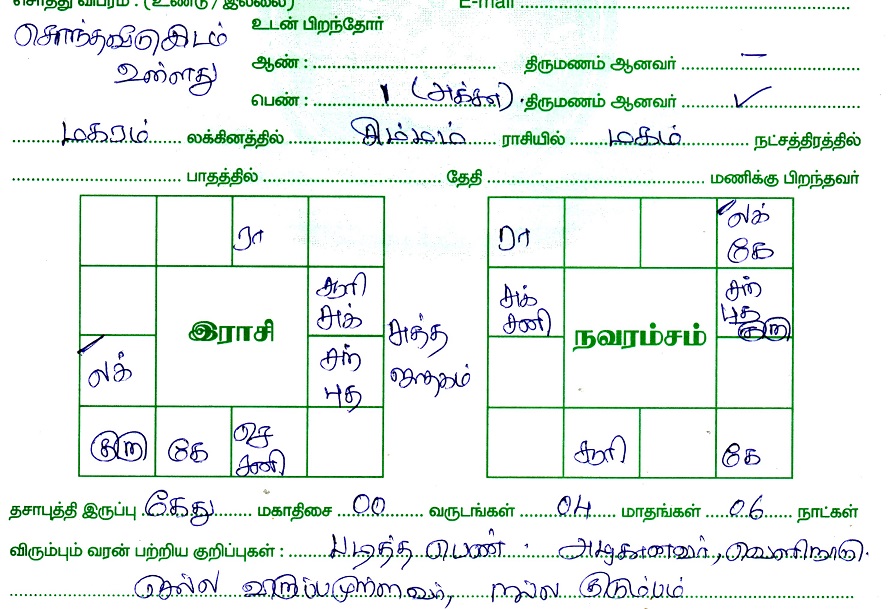 சொத்து விபரம் : (உண்டு / இல்லை) E-mail
சொந்தவீடு இடம் உடன் பிறந்தோர்
உள்ளது ஆண் : திருமணம் ஆனவர் –
பெண் : 1 (அக்கா) திருமணம் ஆனவர் ✓
மகரம் லக்கினத்தில் சிம்மம் ராசியில் மகம் நட்சத்திரத்தில்
பாதத்தில் தேதி மணிக்கு பிறந்தவர்
ரா
சூரி
சுக்
இராசி
லக்
சந்
புத
குரு கே செ
சனி
சுத்த
ஜாதகம்
ரா லக்
கே
சுக்
சனி
சந்
புத
குரு
நவரம்சம்
சூரி கே
தசாபுத்தி இருப்பு கேது மகாதிசை 00 வருடங்கள் 04 மாதங்கள் 06 நாட்கள்
விரும்பும் வரன் பற்றிய குறிப்புகள் : படித்த பெண். அழகானவர், வெளிநாடு
செல்ல விருப்பமுள்ளவர், நல்ல குடும்பம்